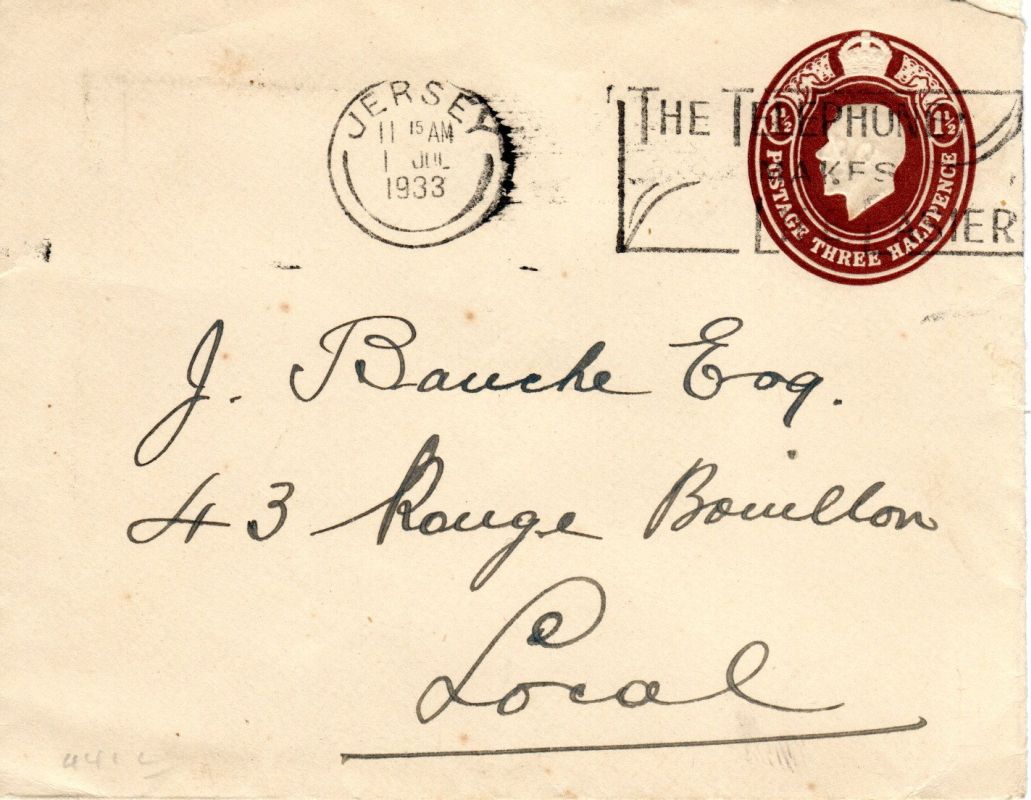 JERSEY
11 15 AM
1 JUL
1933
THE TELEPHONE
MAKES
LIFE EASIER
1½ 1½
POSTAGE THREE HALFPENCE
J. Bauche Esq.
43 Rouge Bouillon
Local